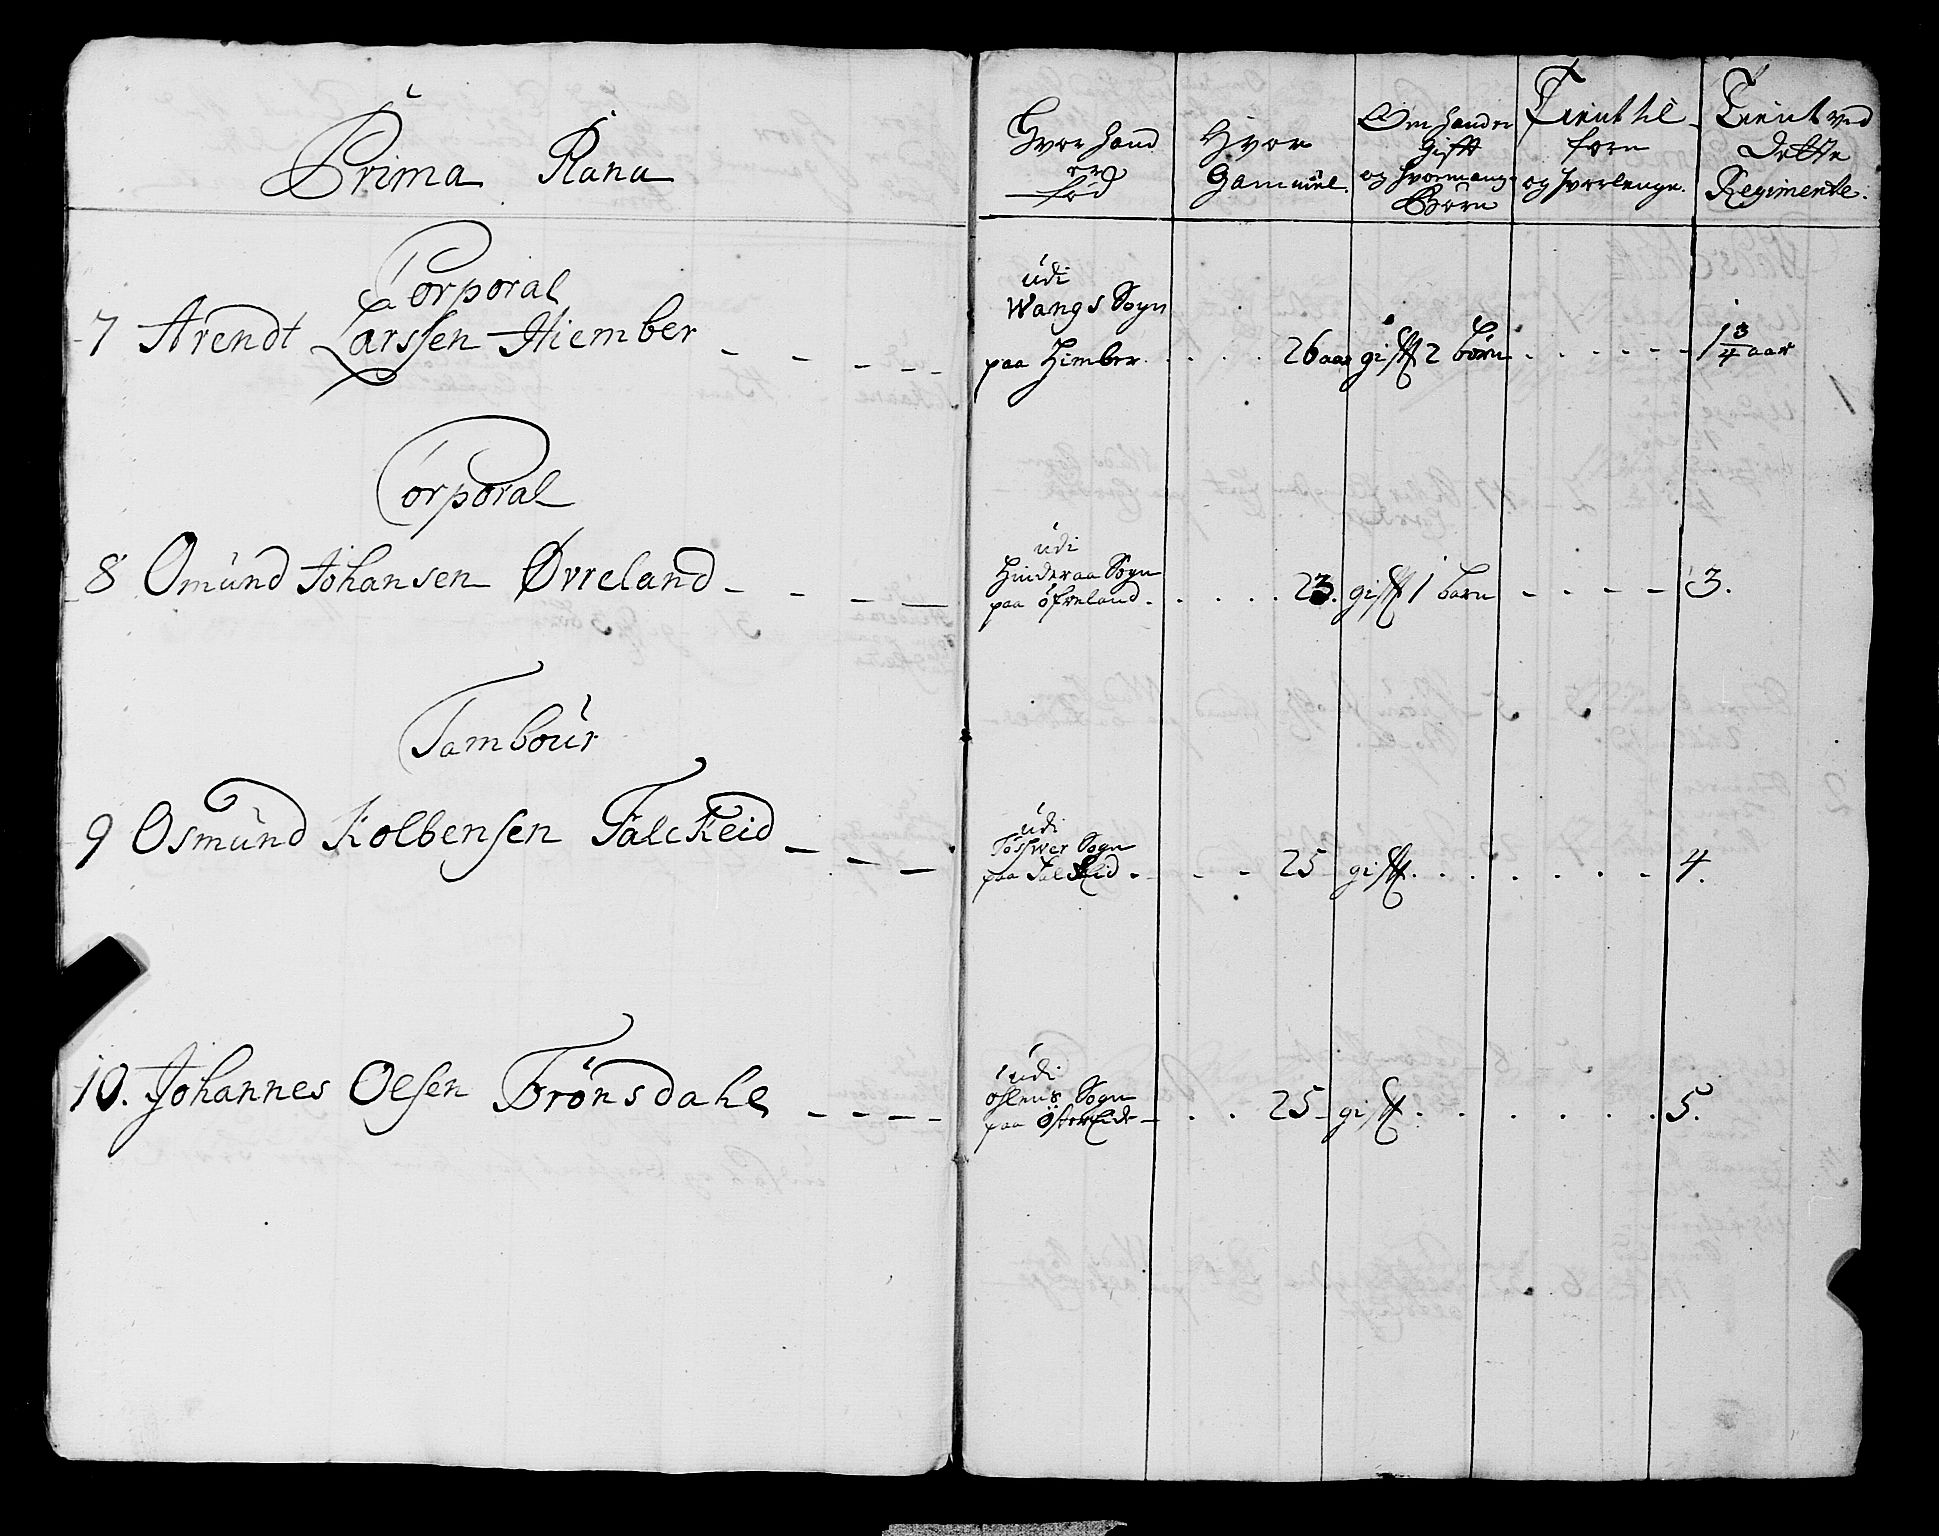 Prima Plana
Hvor hand er fød
Hvor Gammel.
Om hand er gifft og hvormange Børn
Tient til forn og hvorlenge.
Tient ved dette Regimente.
Corporal
7 Arendt Larssen Hiember
udi Wangs Sogn paa Himber. 26 aar gifft 2 børn 1 3/4 aar
Corporal
8 Omund Johansen Øvreland
udi Hinderaa Sogn paa öfreland. 23. gifft 1 barn 3.
Tambour
9 Osmund Kolbensen Falckeid
udi Sogn paa Falckeid 25 gifft. 4.
10. Johannes Olsen Frönsdahl
udi Sogn paa Östereide 25 gifft. 5.